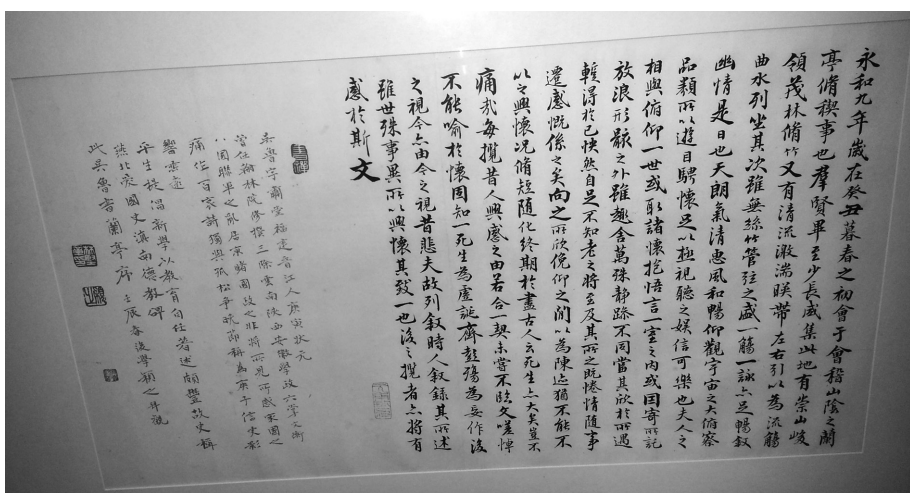 永和九年歲在癸丑暮春之初會于會稽山陰之蘭
亭脩稧事也羣賢畢至少長咸集此地有崇山峻
領茂林脩竹又有清流激湍暎帶左右引以為流觴
曲水列坐其次雖無絲竹管弦之盛一觴一詠亦足暢叙
幽情是日也天朗氣清惠風和暢仰觀宇宙之大俯察
品類所以遊目騁懷足以極視聽之娛信可樂也夫人之
相與俯仰一世或取諸懷抱悟言一室之內或因寄所託
放浪形骸之外雖趣舍萬殊靜躁不同當其欣於所遇
輕得於己怏然自足不知老之將至及其所之既惓情隨事
遷感慨係之矣向之所欣俛仰之間以為陳迹猶不能不
以之興懷況脩短隨化終期於盡古人云死生亦大矣豈不
痛哉每攬昔人興感之由若合一契未嘗不臨文嗟悼
不能喻於懷固知一死生為虛誕齊彭殤為妄作後
之視今亦由今之視昔悲夫故列叙時人叙錄其所述
雖世殊事異所以興懷其致一也後之攬者亦將有
感於斯文
吳魯字肅堂福建晉江人庚寅狀元
曾任翰林院修撰三除雲南陝西安徽學政六掌文衡
八國聯軍之亂居京觸國政之非將所見所感家國之
痛作百哀詩獨與孤松爭抗節稱為庚子信史
平生提倡新學以教育自任著述頗豐故史稱
燕北哀國史滇南德教碑
此吳魯書蘭亭序壬辰春後學